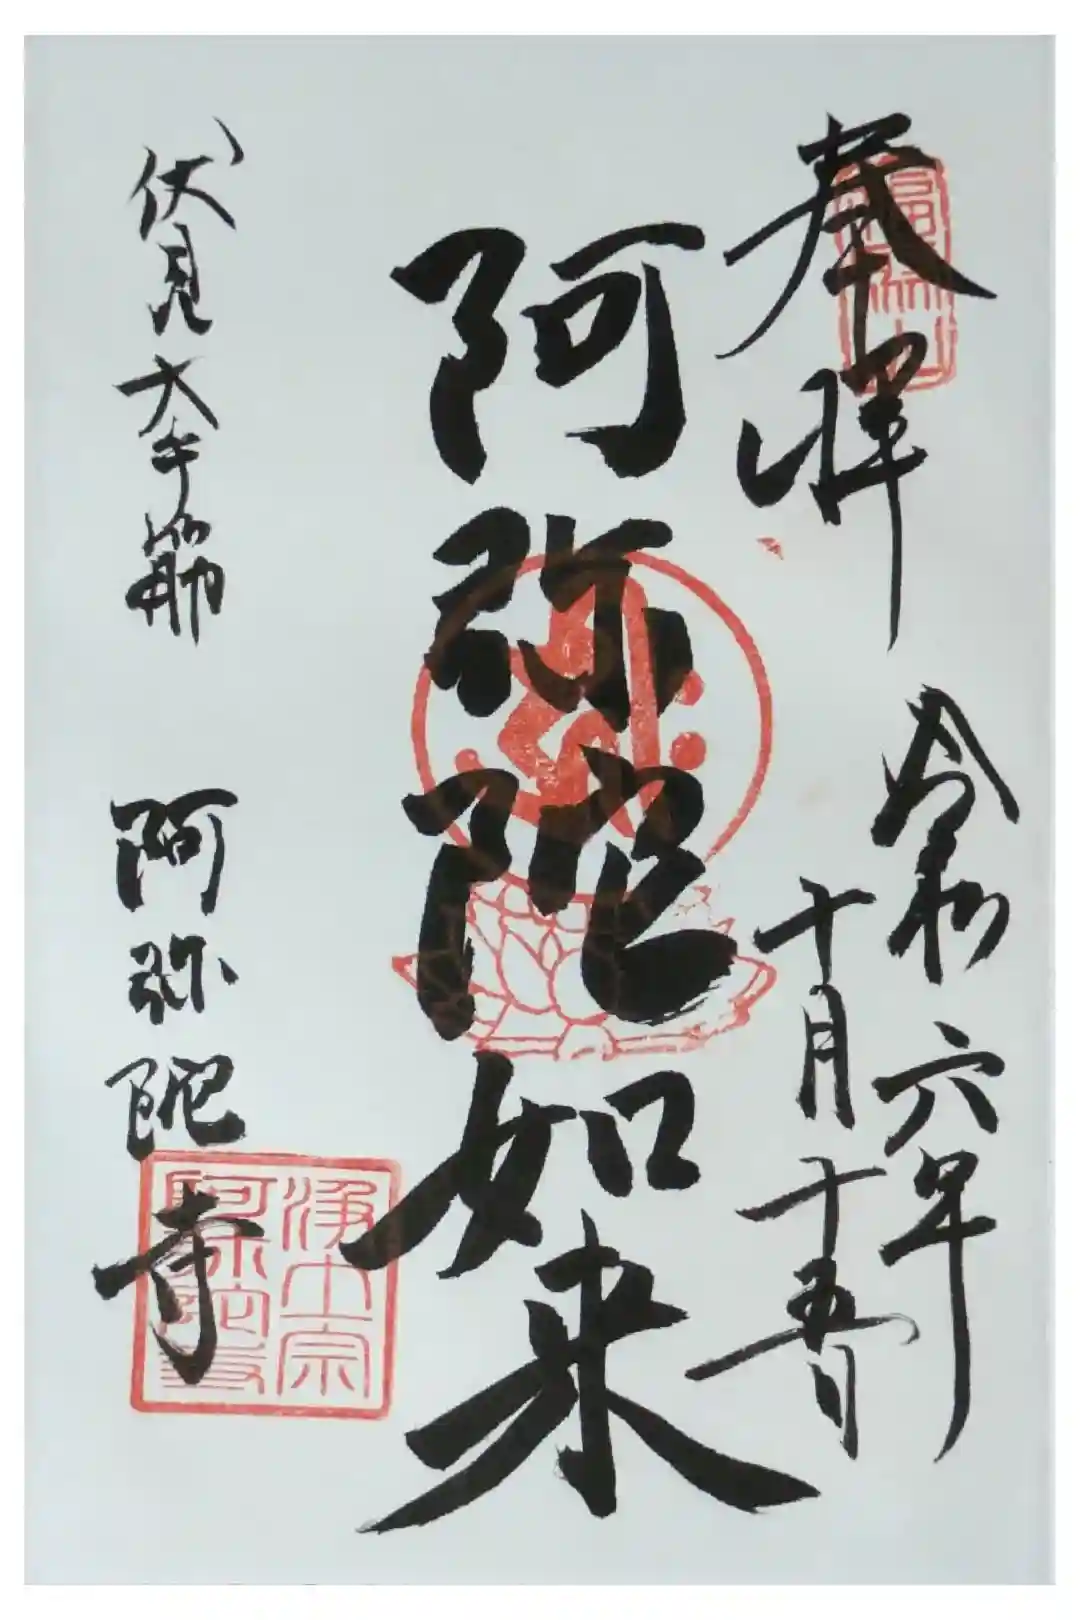 奉拝
令和六年
十月十五日
阿弥陀如来
伏見大手筋
阿弥陀寺
浄土宗
阿弥陀寺